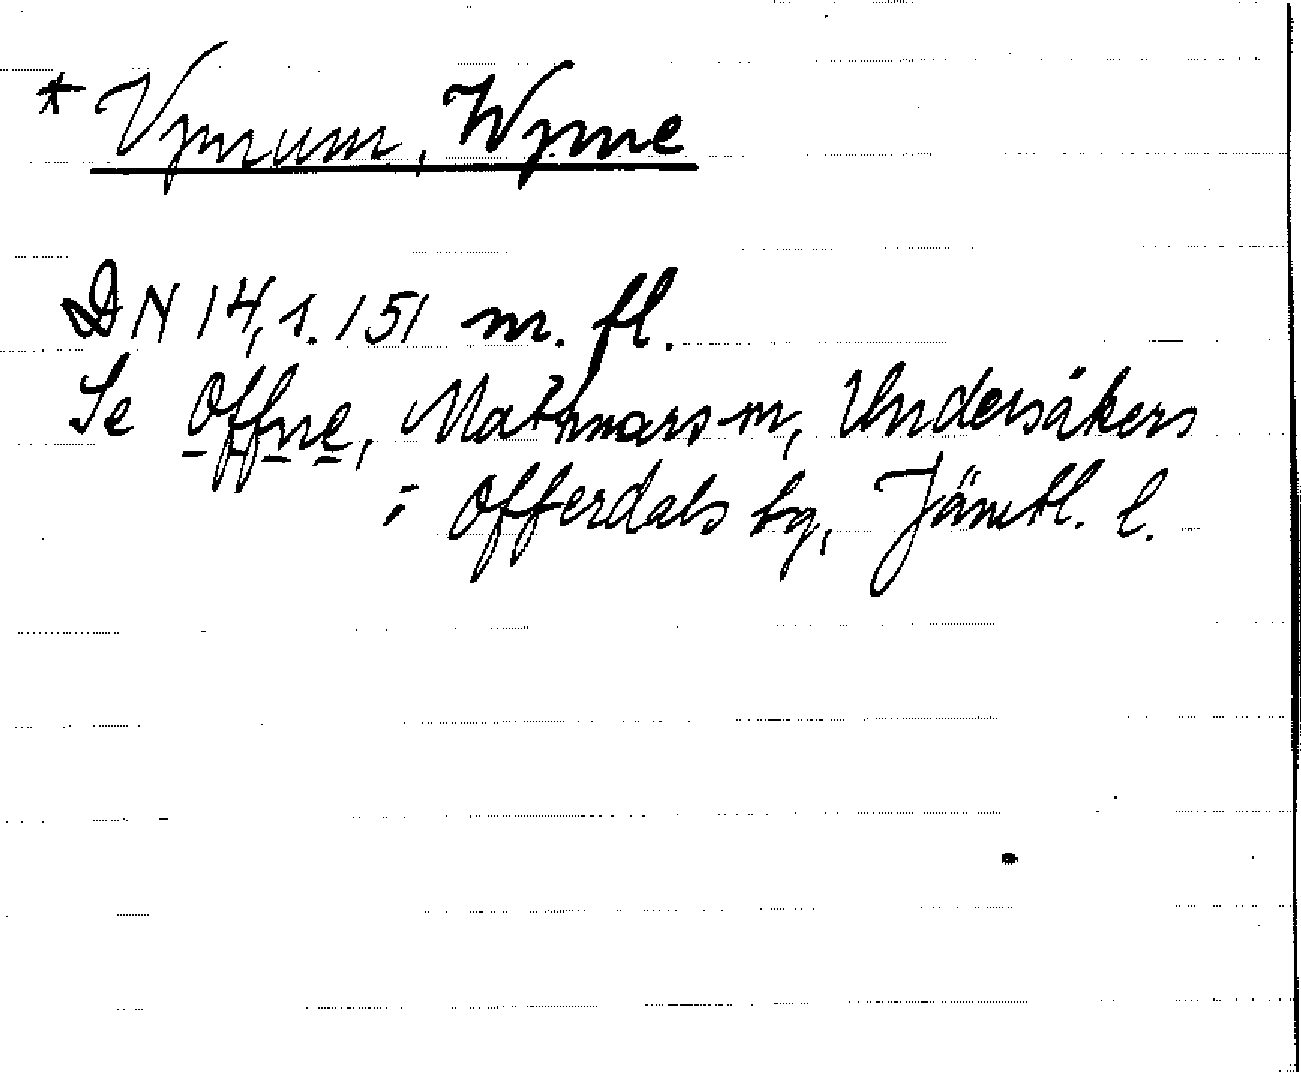 * Vynum, Wyne
DN 14, 1. 151 m. fl.
Se Offne, Mattmars sn, Undersåkers
o Offerdals tg, Jämtl. l.